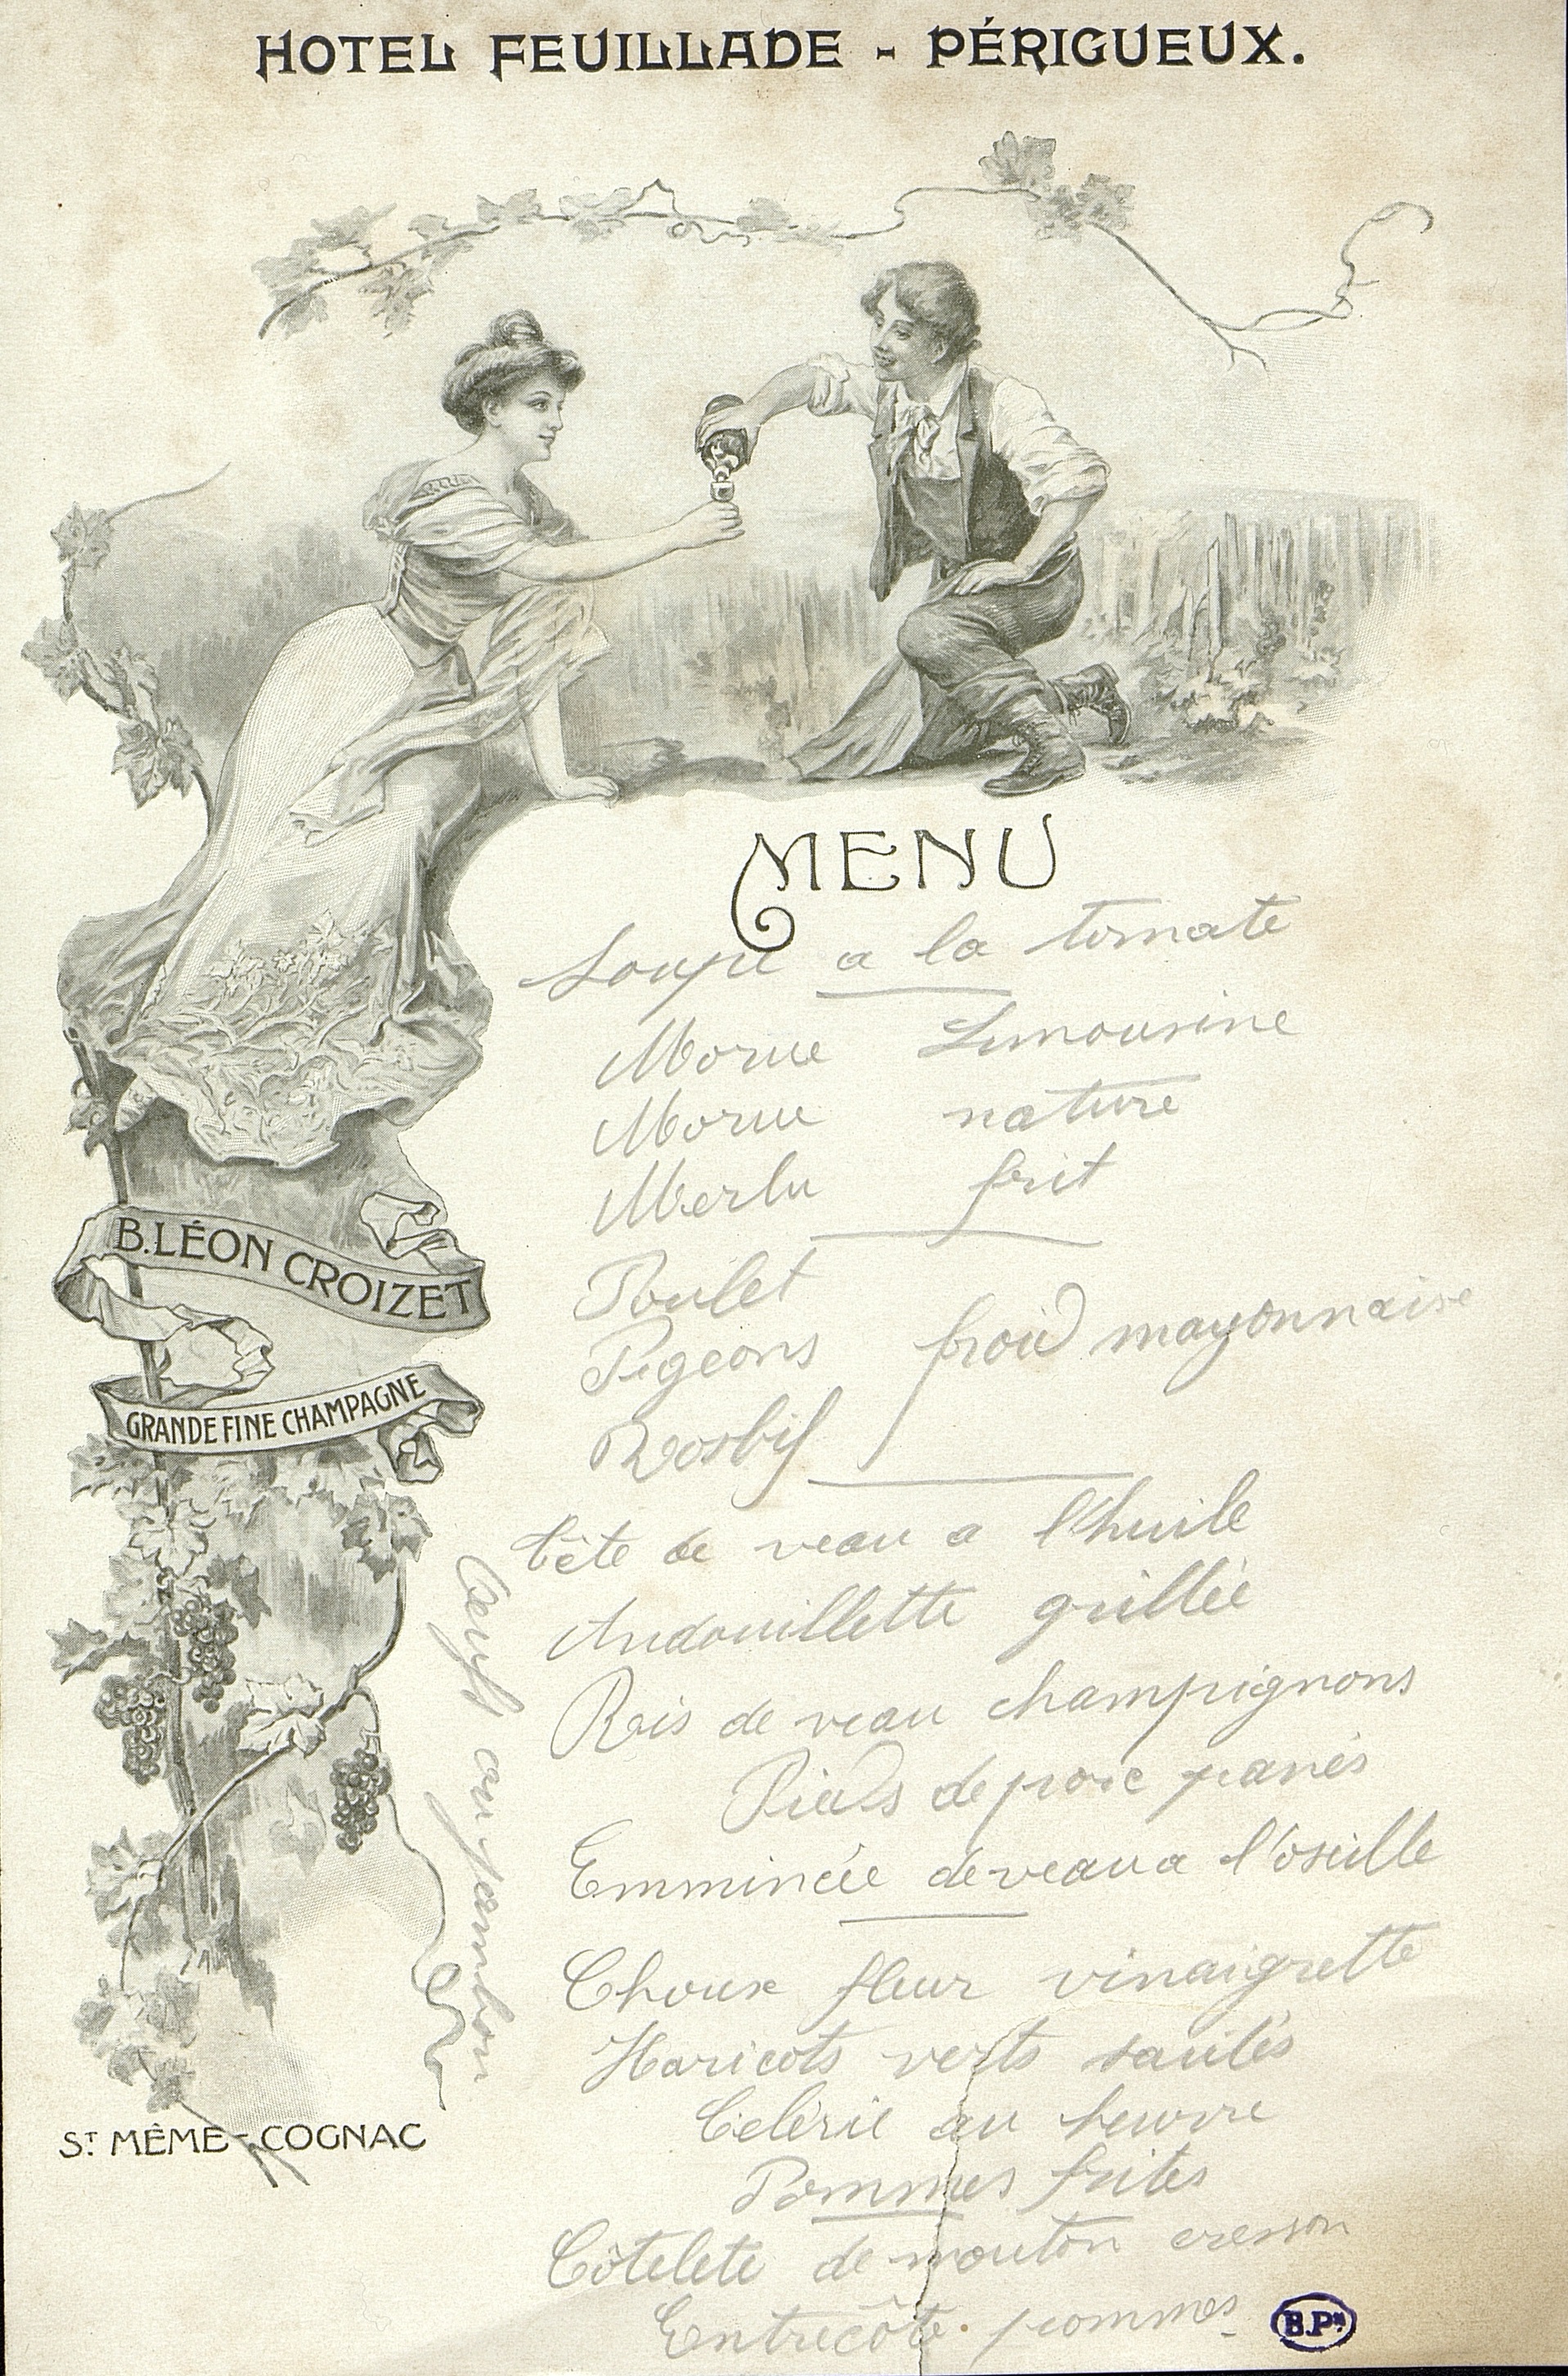 HOTEL FEUILLADE - PÉRIGUEUX.
MENU
Soupe a la tomate
Morue Limousine
Morue nature
Merlu frit
Poulet
Pigeons froid mayonnaise
Rosbif
B. LÉON CROIZET
GRANDE FINE CHAMPAGNE
Tête de veau a l'huile
Andouillette grillée
Ris de veau champignons
Pieds de porc panés
Emmincée de veau a l'oseille
Oeufs au jambon
Choux fleur vinaigrette
Haricots verts sautés
Célérie au beurre
Pommes frites
Côtelete de mouton cresson
Entrecôte pommes
ST MÊME - COGNAC
B.Px